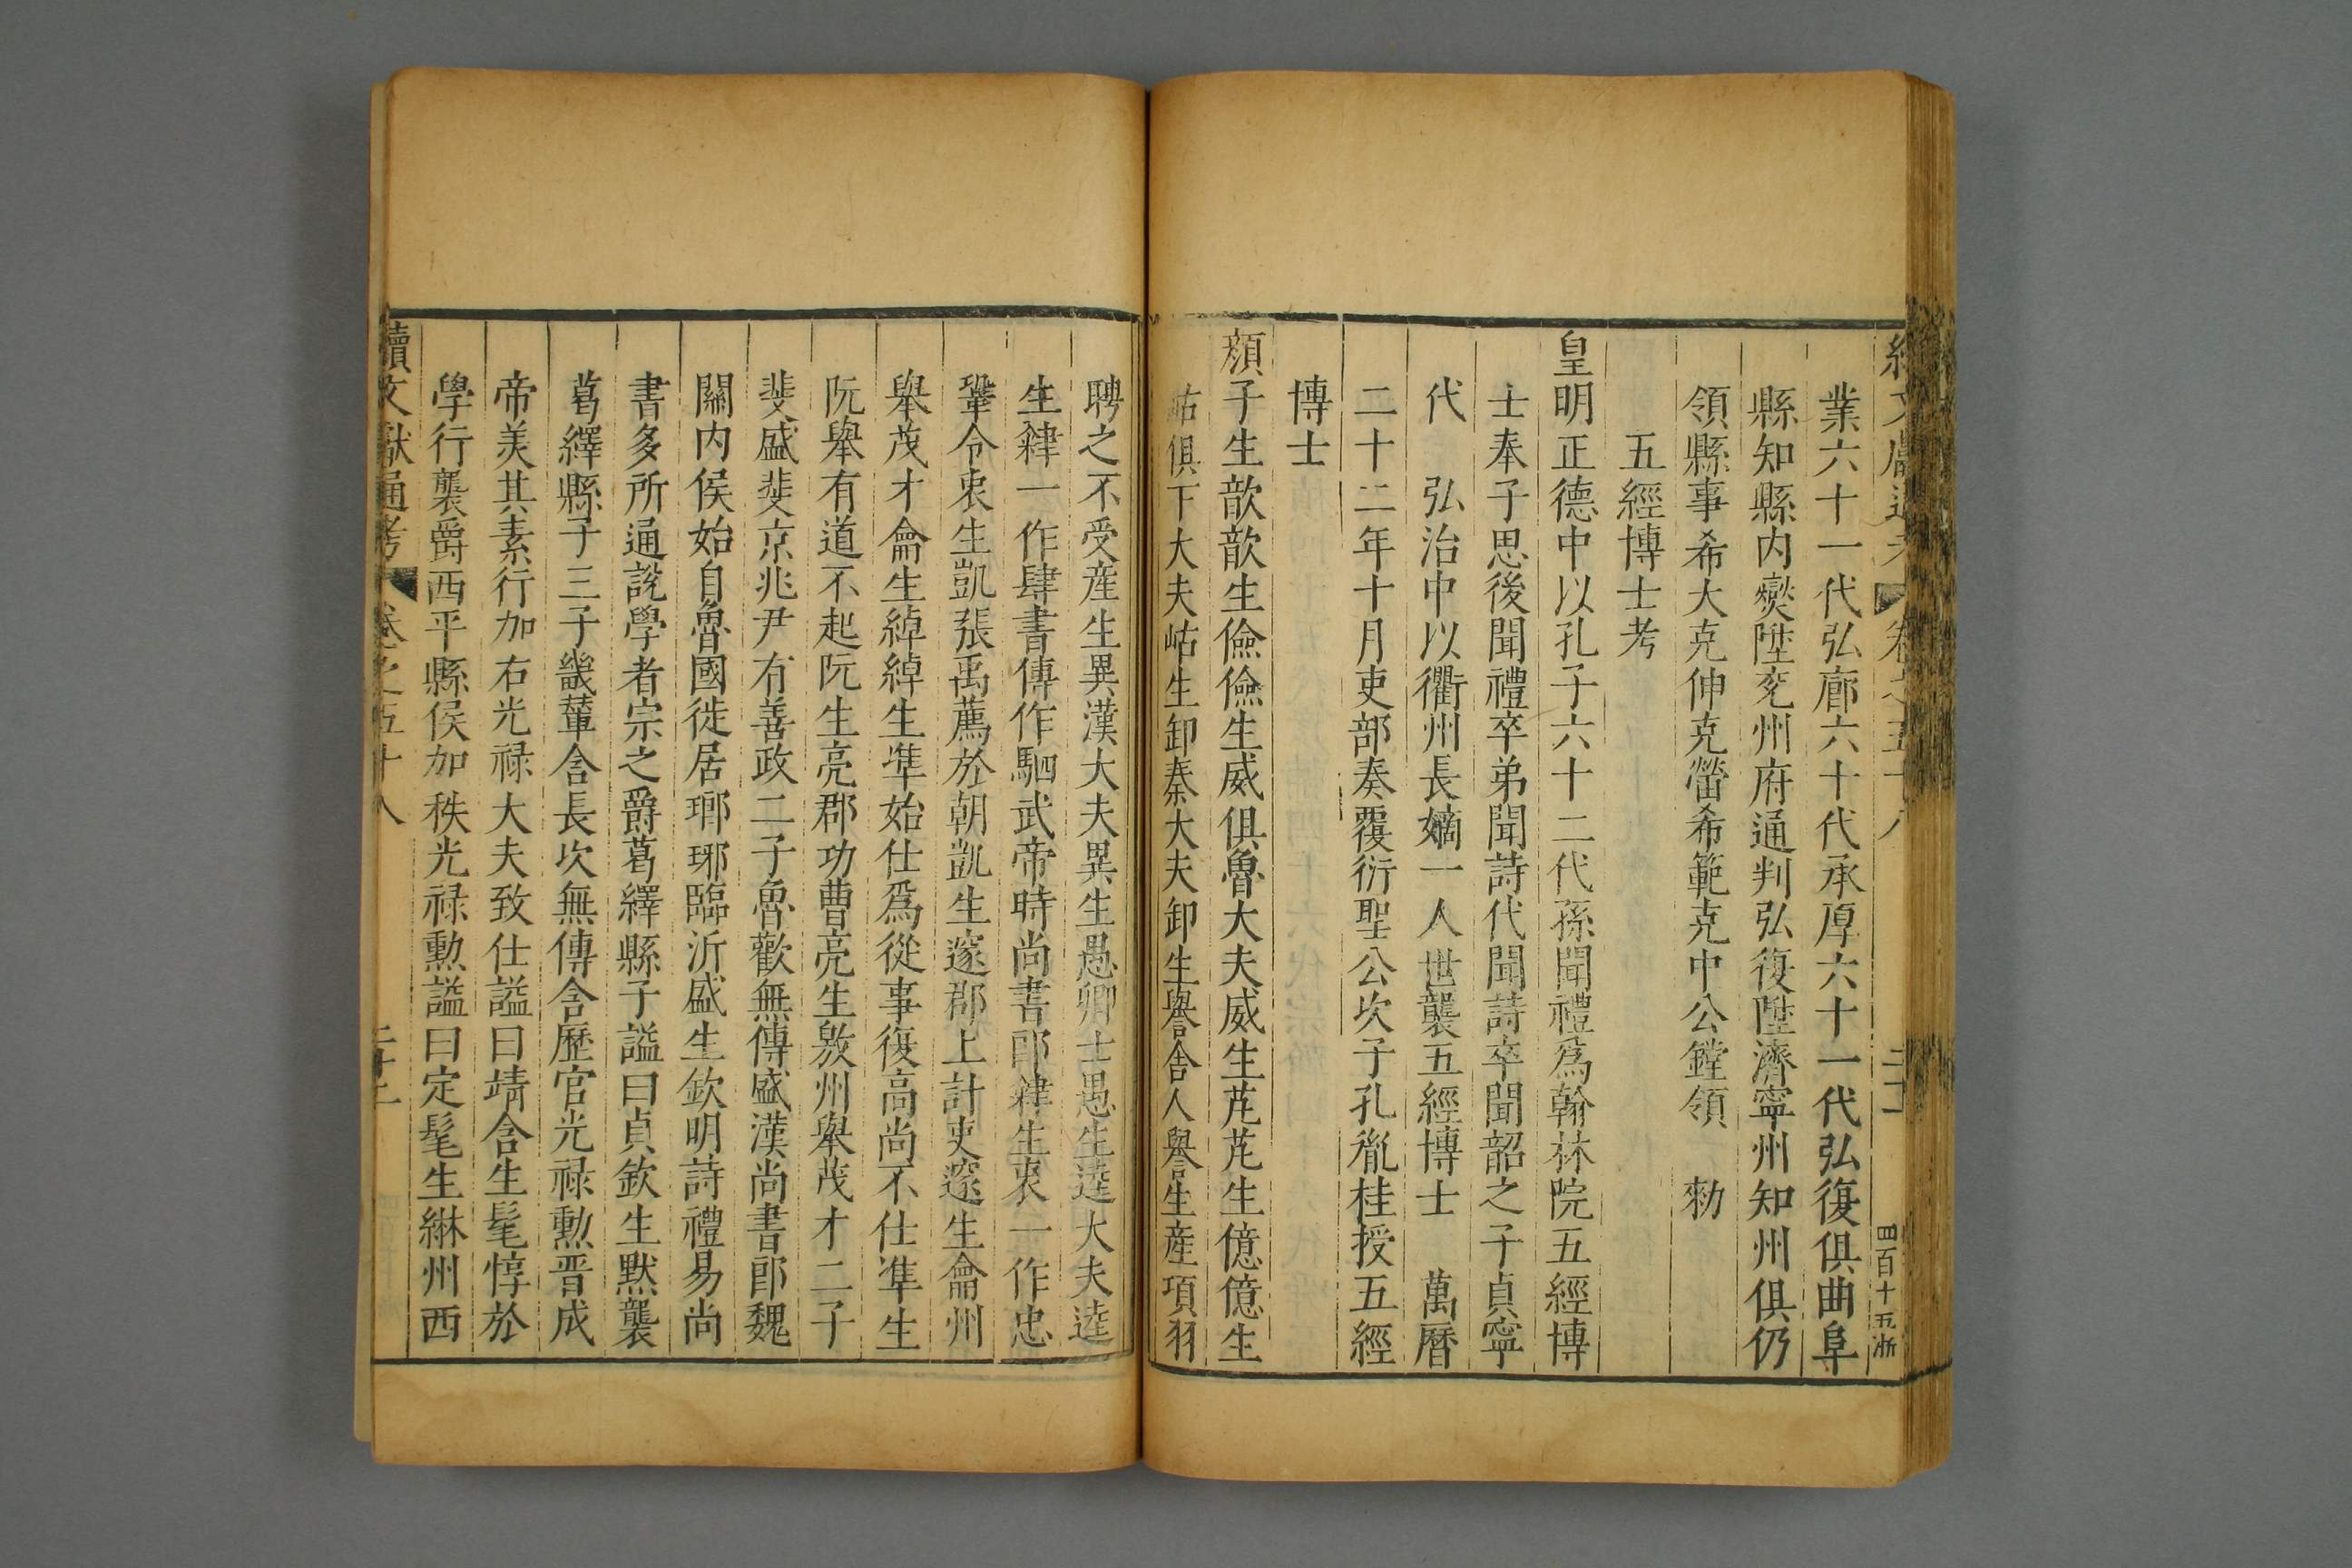 業六十一代弘廊六十代承厚六十一代弘復俱曲阜
縣知縣内爕陞兖州府通判弘復陞濟寧州知州俱仍
領縣事希大克伸克䓨希範克中公鏜領 勑
五經博士考
皇明正德中以孔子六十二代孫聞禮爲翰林院五經博
士奉子思後聞禮卒弟聞詩代聞詩卒聞韶之子貞寧
代 弘治中以衢州長嫡一人世襲五經博士 萬曆
二十二年十月吏部奏覆衍聖公次子孔胤桂授五經
博士
顔子生歆歆生儉儉生威俱魯大夫威生芃芃生億億生
岵俱下大夫岵生卸秦大夫卸生譽舍人譽生産項羽
聘之不受産生異漢大夫異生愚卿士愚生逵大夫逵
生肂一作肆書傳作駟武帝時尚書郎肂生衷一作忠
鞏令衷生凱張禹薦於朝凱生邃郡上計吏邃生龠州
舉茂才龠生綽綽生凖始仕爲從事復高尚不仕凖生
阮舉有道不起阮生亮郡功曹亮生敫州舉茂才二子
斐盛斐京兆尹有善政二子魯歡無傳盛漢尚書郎魏
關内侯始自魯國徙居瑯琊臨沂盛生欽明詩禮易尚
書多所通說學者宗之爵葛繹縣子謚曰貞欽生默襲
葛繹縣子三子畿輦含長次無傳含歷官光禄勲晋成
帝美其素行加右光禄大夫致仕謚曰靖含生髦惇於
學行襲爵西平縣侯加秩光禄勲謚曰定髦生綝州西
續文獻通考 卷之五十八